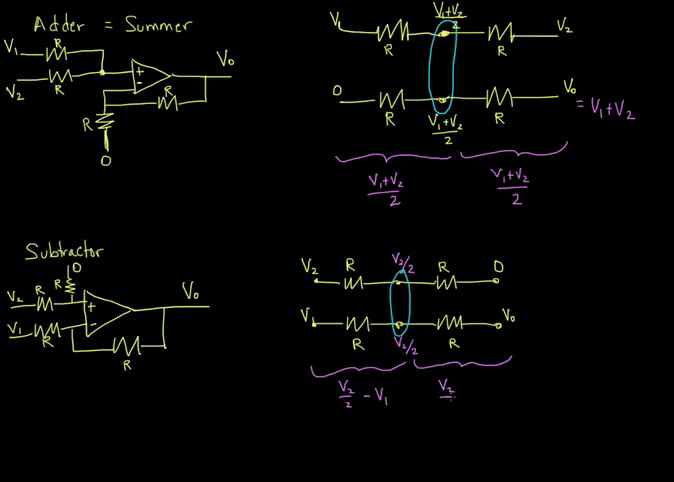 Adder = Summer
V₁
R
V₂
R
+
-
V₀
R
R
0
V₁
R
V₁+V₂/2
R
V₂
0
R
V₁+V₂/2
R
V₀
= V₁+V₂
V₁+V₂/2
V₁+V₂/2
Subtractor
0
R
V₂
R
V₁
R
+
-
V₀
R
V₂
R
V₂/2
R
0
V₁
R
V₂/2
R
V₀
V₂/2 - V₁
V₂